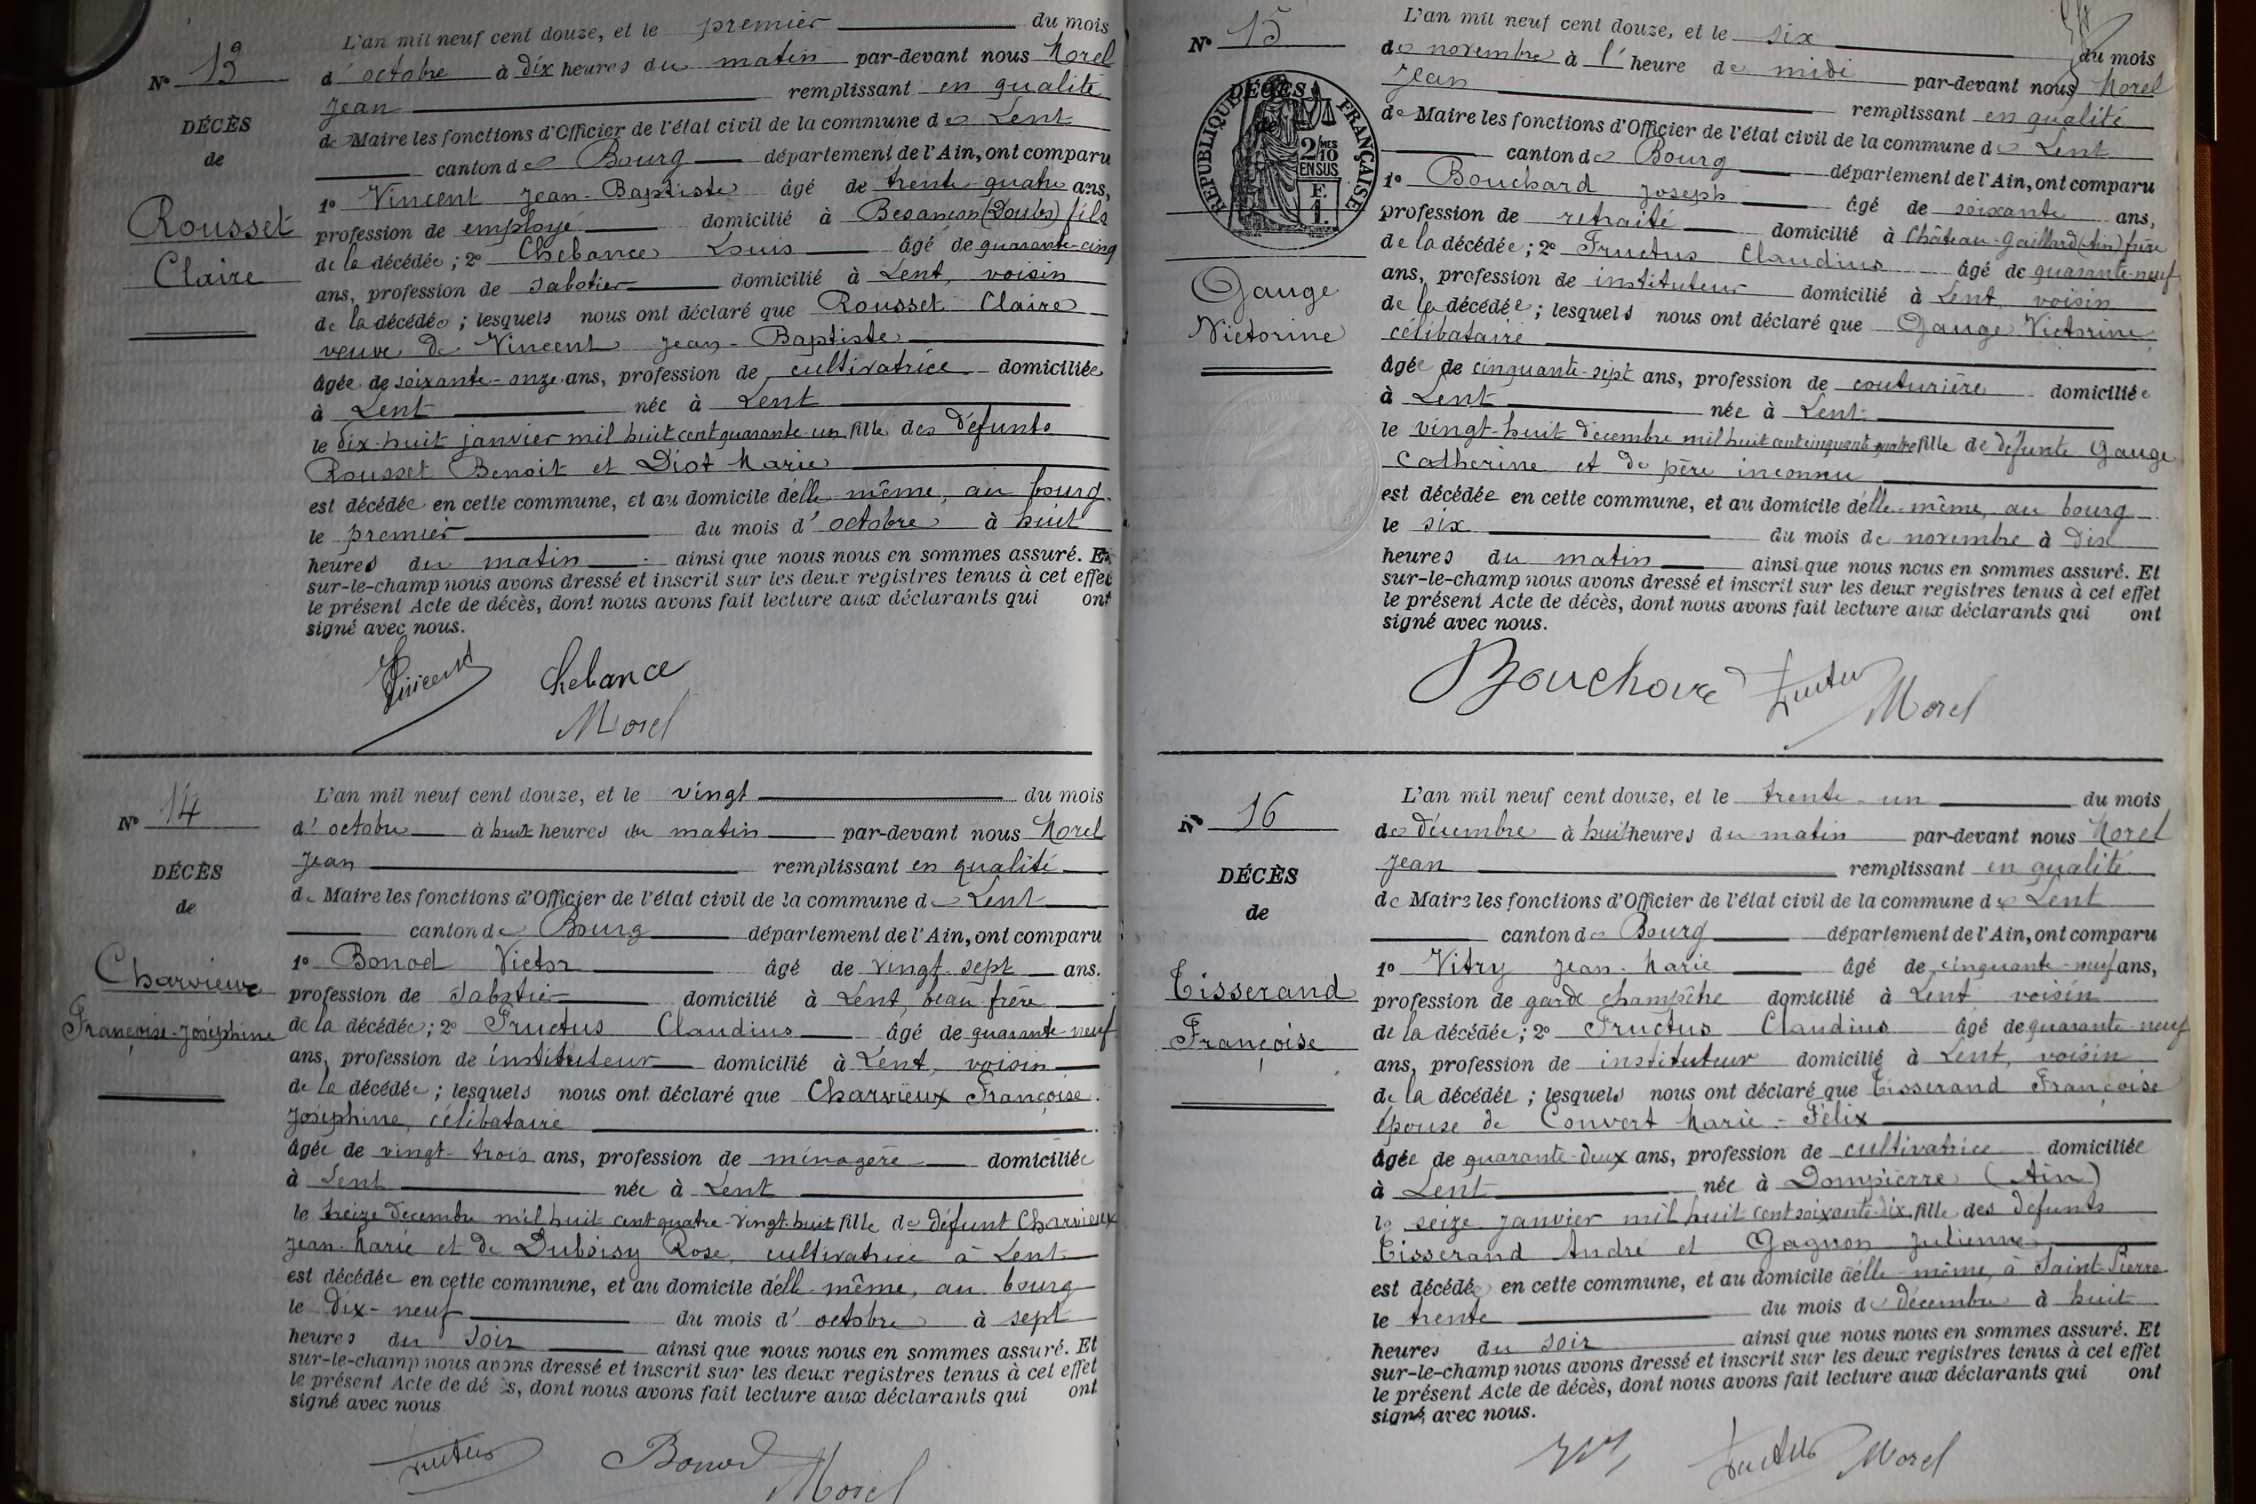 N° 13
DÉCÈS
de
Rousset
Claire
L'an mil neuf cent douze, et le premier du mois
d'octobre à dix heures du matin par-devant nous Morel
Jean remplissant en qualité
de Maire les fonctions d'Officier de l'état civil de la commune de Lent
canton de Bourg département de l'Ain, ont comparu
1° Vincent Jean-Baptiste âgé de trente-quatre ans,
profession de employé domicilié à Besançon (Doubs) fils
de la décédée; 2° Chebance Louis âgé de quarante-cinq
ans, profession de sabotier domicilié à Lent, voisin
de la décédée; lesquels nous ont déclaré que Rousset Claire
veuve de Vincent Jean-Baptiste
âgée de soixante-onze ans, profession de cultivatrice domiciliée
à Lent née à Lent
le dix-huit janvier mil huit cent quarante-un fille des défunts
Rousset Benoit et Diot Marie
est décédée en cette commune, et au domicile d'elle-même, au bourg
le premier du mois d'octobre à huit
heures du matin ainsi que nous nous en sommes assuré. Et
sur-le-champ nous avons dressé et inscrit sur les deux registres tenus à cet effet
le présent Acte de décès, dont nous avons fait lecture aux déclarants qui ont
signé avec nous.
Vincent Chebance
Morel
N° 14
DÉCÈS
de
Charvieux
Françoise-Joséphine
L'an mil neuf cent douze, et le vingt du mois
d'octobre à huit heures du matin par-devant nous Morel
Jean remplissant en qualité
de Maire les fonctions d'Officier de l'état civil de la commune de Lent
canton de Bourg département de l'Ain, ont comparu
1° Bonod Victor âgé de vingt-sept ans.
profession de sabotier domicilié à Lent, beau frère
de la décédée; 2° Fructus Claudius âgé de quarante-neuf
ans, profession de instituteur domicilié à Lent, voisin
de la décédée; lesquels nous ont déclaré que Charvieux Françoise
Joséphine, célibataire
âgée de vingt-trois ans, profession de ménagère domiciliée
à Lent née à Lent
le treize décembre mil huit cent quatre-vingt-huit fille de défunt Charvieux
Jean-Marie et de Duboisy Rose, cultivatrice à Lent
est décédée en cette commune, et au domicile d'elle-même, au bourg
le dix-neuf du mois d'octobre à sept
heures du soir ainsi que nous nous en sommes assuré. Et
sur-le-champ nous avons dressé et inscrit sur les deux registres tenus à cet effet
le présent Acte de dé ès, dont nous avons fait lecture aux déclarants qui ont
signé avec nous
Fructus Bonod Morel
N° 15
DÉCÈS
de
RÉPUBLIQUE FRANÇAISE
2/10 MES
EN SUS
F.
1.
Gauge
Victorine
L'an mil neuf cent douze, et le six du mois
de novembre à l'heure de midi par-devant nous Morel
Jean remplissant en qualité
de Maire les fonctions d'Officier de l'état civil de la commune de Lent
canton de Bourg département de l'Ain, ont comparu
1° Bouchard Joseph âgé de soixante ans,
profession de retraité domicilié à Château-Gaillard (Ain) frère
de la décédée; 2° Fructus Claudius âgé de quarante-neuf
ans, profession de instituteur domicilié à Lent, voisin
de la décédée; lesquels nous ont déclaré que Gauge Victorine
célibataire
âgée de cinquante-sept ans, profession de couturière domiciliée
à Lent née à Lent
le vingt-huit décembre mil huit cent cinquante-quatre fille de défunte Gauge
Catherine et de père inconnu
est décédée en cette commune, et au domicile d'elle-même, au bourg
le six du mois de novembre à dix
heures du matin ainsi que nous nous en sommes assuré. Et
sur-le-champ nous avons dressé et inscrit sur les deux registres tenus à cet effet
le présent Acte de décès, dont nous avons fait lecture aux déclarants qui ont
signé avec nous.
Bouchard Fructus Morel
N° 16
DÉCÈS
de
Tisserand
Françoise
L'an mil neuf cent douze, et le trente-un du mois
de décembre à huit heures du matin par-devant nous Morel
Jean remplissant en qualité
de Maire les fonctions d'Officier de l'état civil de la commune de Lent
canton de Bourg département de l'Ain, ont comparu
1° Vitry Jean-Marie âgé de cinquante-neuf ans,
profession de garde champêtre domicilié à Lent voisin
de la décédée; 2° Fructus Claudius âgé de quarante-neuf
ans, profession de instituteur domicilié à Lent, voisin
de la décédée; lesquels nous ont déclaré que Tisserand Françoise
épouse de Convert Marie-Félix
âgée de quarante-deux ans, profession de cultivatrice domiciliée
à Lent née à Dompierre (Ain)
le seize janvier mil huit cent soixante-dix fille des défunts
Tisserand André et Gagnon Julienne
est décédée en cette commune, et au domicile d'elle-même, à Saint-Pierre
le trente du mois de décembre à huit
heures du soir ainsi que nous nous en sommes assuré. Et
sur-le-champ nous avons dressé et inscrit sur les deux registres tenus à cet effet
le présent Acte de décès, dont nous avons fait lecture aux déclarants qui ont
signé, avec nous.
Fructus Morel